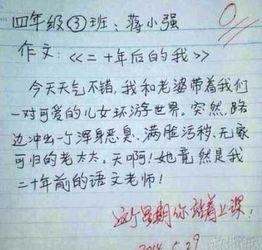 四年级③班：蒋小强
0
作文：《二十年后的我》
今天天气不错，我和老婆带着我们
一对可爱的儿女环游世界。突然，路
边冲出一个浑身恶臭、满脸污秽、无家
可归的老太太，天啊！她竟然是我
二十年前的语文老师！
这个星期你站着上课！
5.29